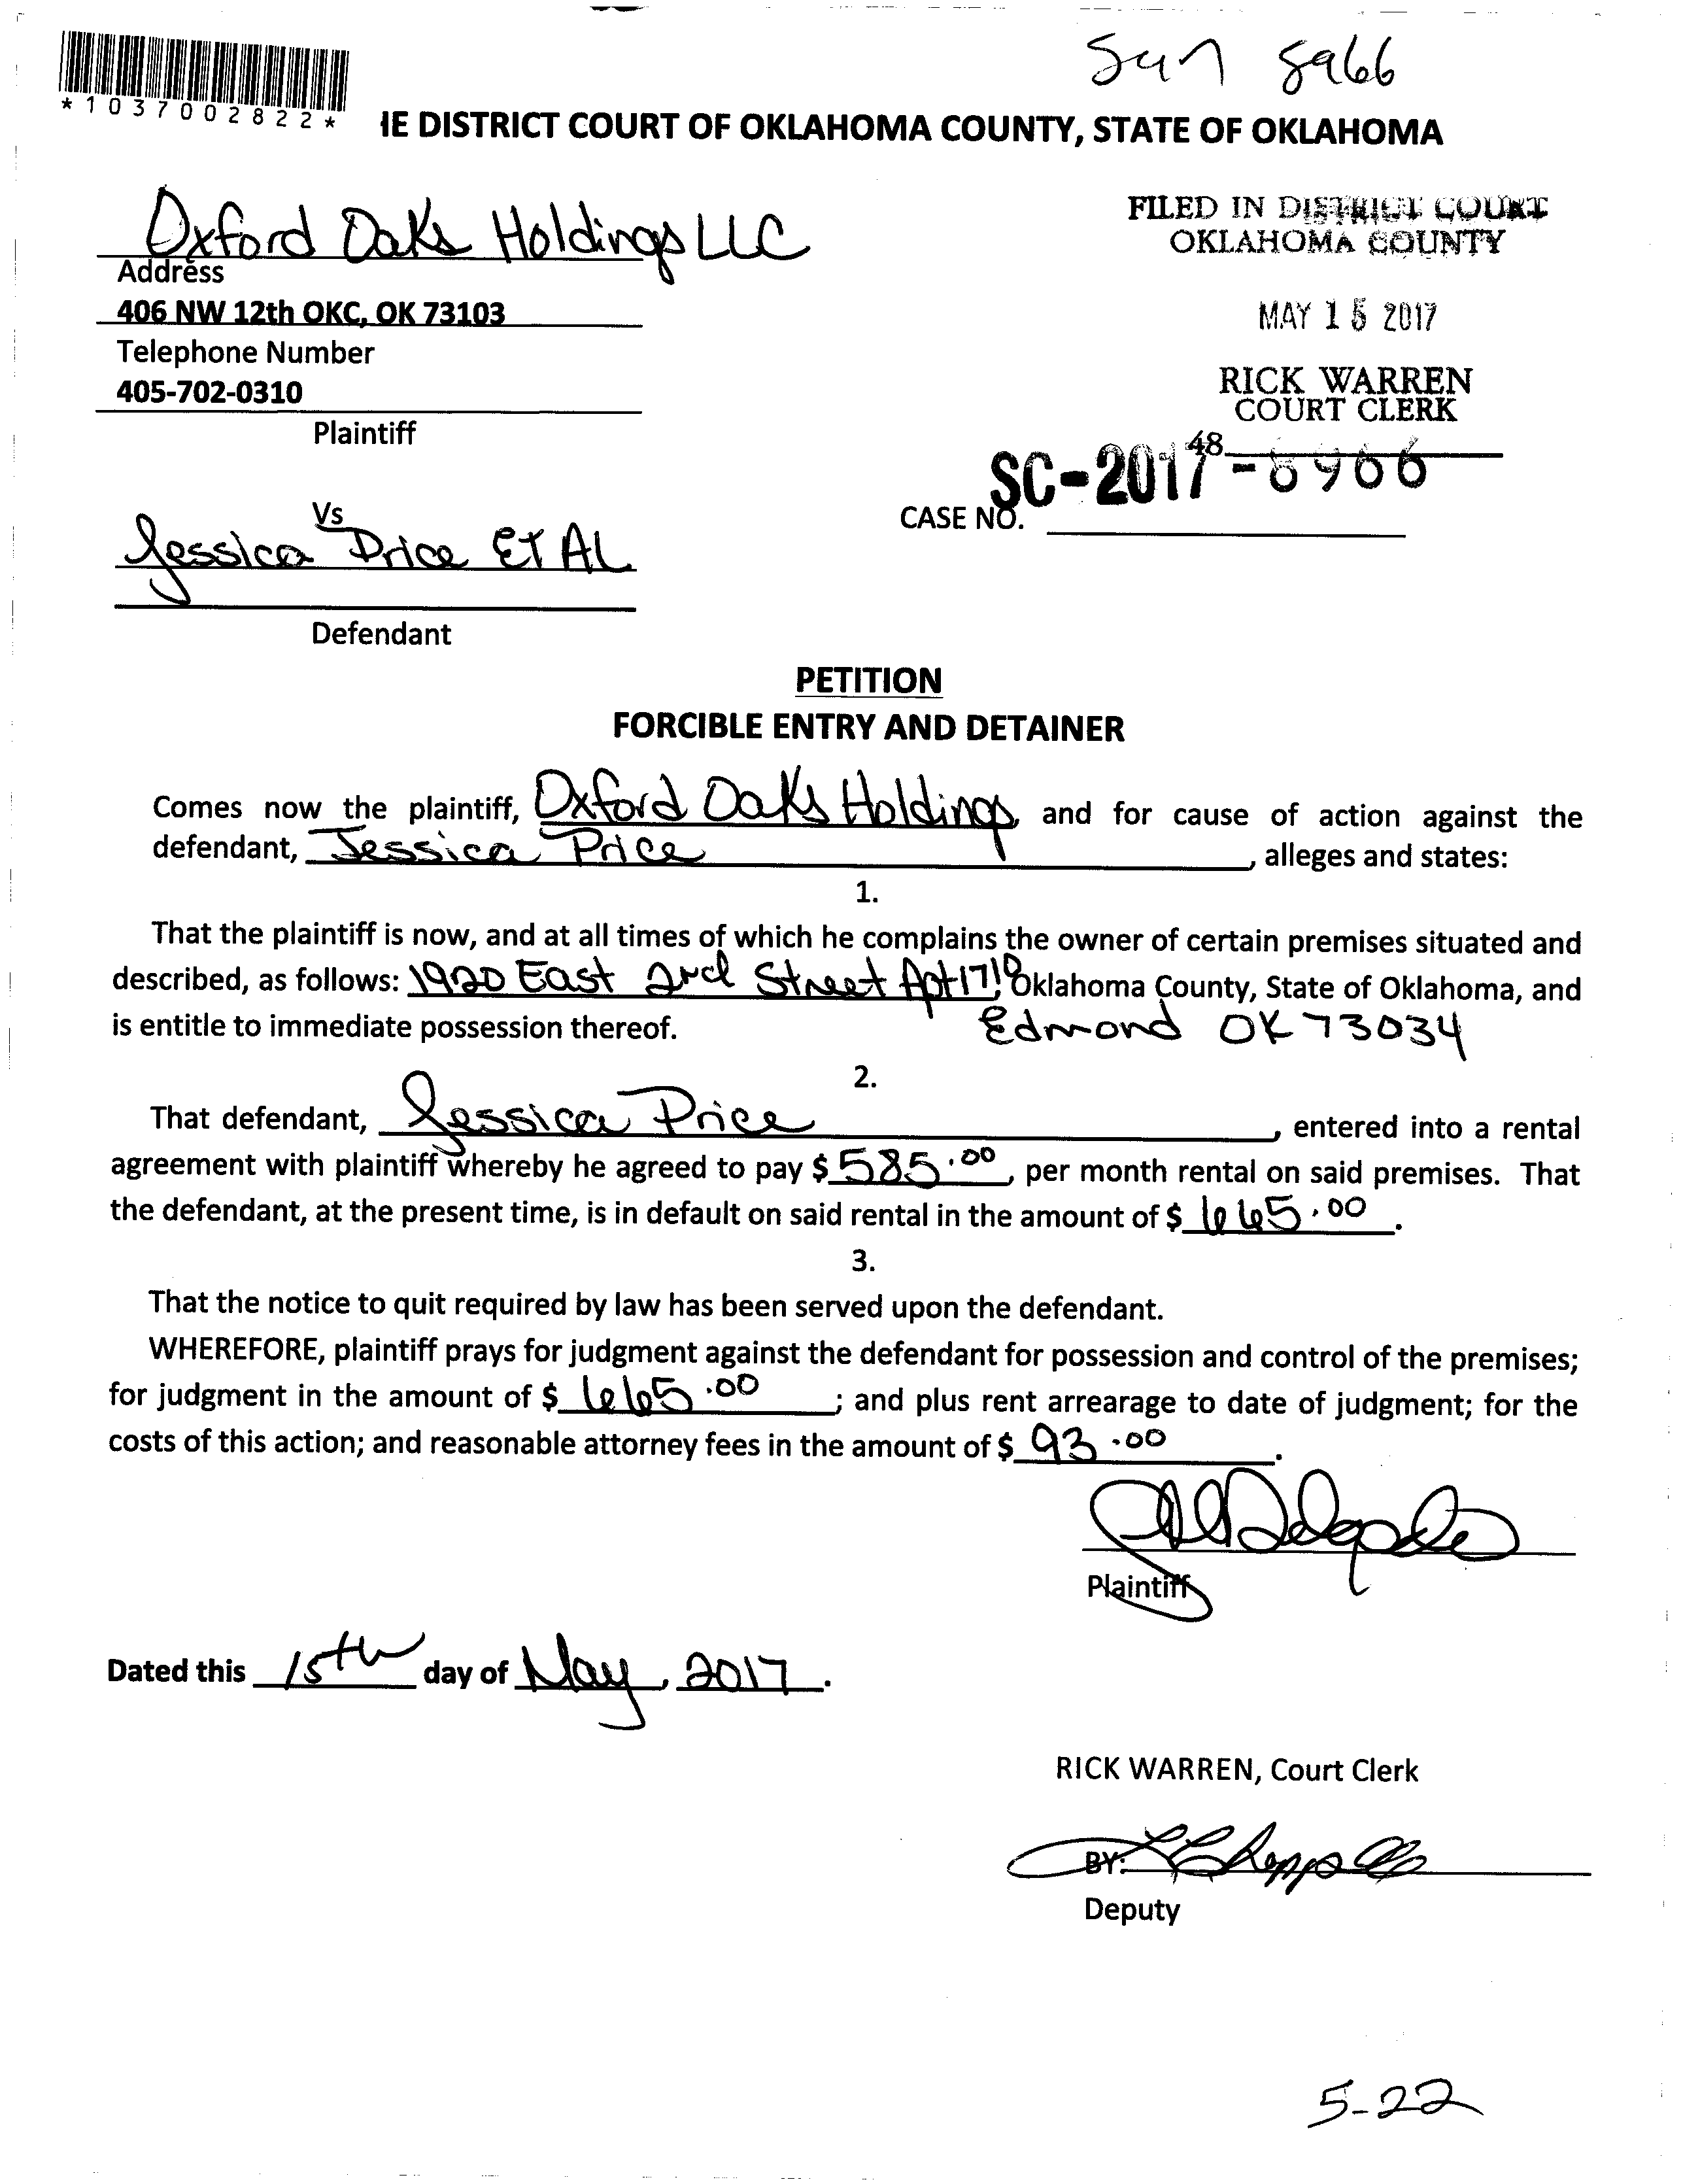 Sun 8966
*1037002822*
IE DISTRICT COURT OF OKLAHOMA COUNTY, STATE OF OKLAHOMA
Oxford Oaks Holdings LLC
Address
406 NW 12th OKC, OK 73103
Telephone Number
405-702-0310
Plaintiff
FILED IN DISTRICT COURT
OKLAHOMA COUNTY
MAY 15 2017
RICK WARREN
COURT CLERK
48
SC-2017-8966
CASE NO.
Vs
Jessica Price ET AL
Defendant
PETITION
FORCIBLE ENTRY AND DETAINER
Comes now the plaintiff, Oxford Oaks Holdings, and for cause of action against the
defendant, Jessica Price, alleges and states:
1.
That the plaintiff is now, and at all times of which he complains the owner of certain premises situated and
described, as follows: 1920 East 2nd Street Apt 1710 Oklahoma County, State of Oklahoma, and
is entitle to immediate possession thereof. Edmond OK 73034
2.
That defendant, Jessica Price, entered into a rental
agreement with plaintiff whereby he agreed to pay $ 585.00, per month rental on said premises. That
the defendant, at the present time, is in default on said rental in the amount of $ 665.00.
3.
That the notice to quit required by law has been served upon the defendant.
WHEREFORE, plaintiff prays for judgment against the defendant for possession and control of the premises;
for judgment in the amount of $ 665.00; and plus rent arrearage to date of judgment; for the
costs of this action; and reasonable attorney fees in the amount of $ 93.00.
Plaintiff
Dated this 15th day of May, 2017.
RICK WARREN, Court Clerk
BY:
Deputy
5-22